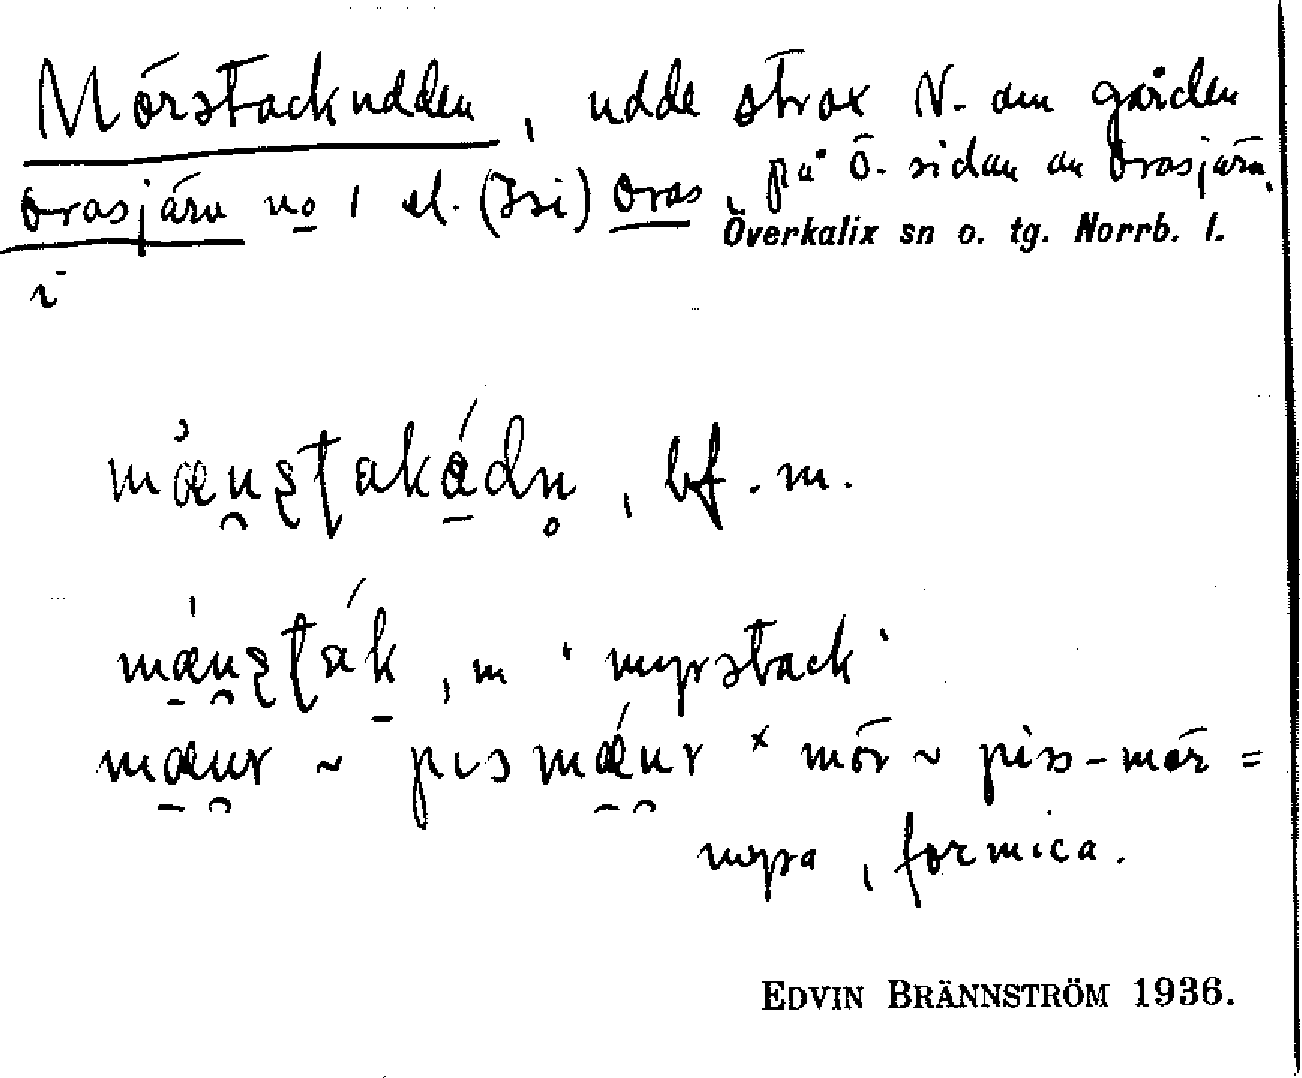 Mörstackudden, udde strax N. om gården
Orasjärv no 1 el. (Isi) Oras, på Ö. sidan av Orasjärv,
i Överkalix sn o. tg. Norrb. l.
bf. m.
m 'myrstack'
mör ~ piss-mör =
myra, formica.
EDVIN BRÄNNSTRÖM 1936.